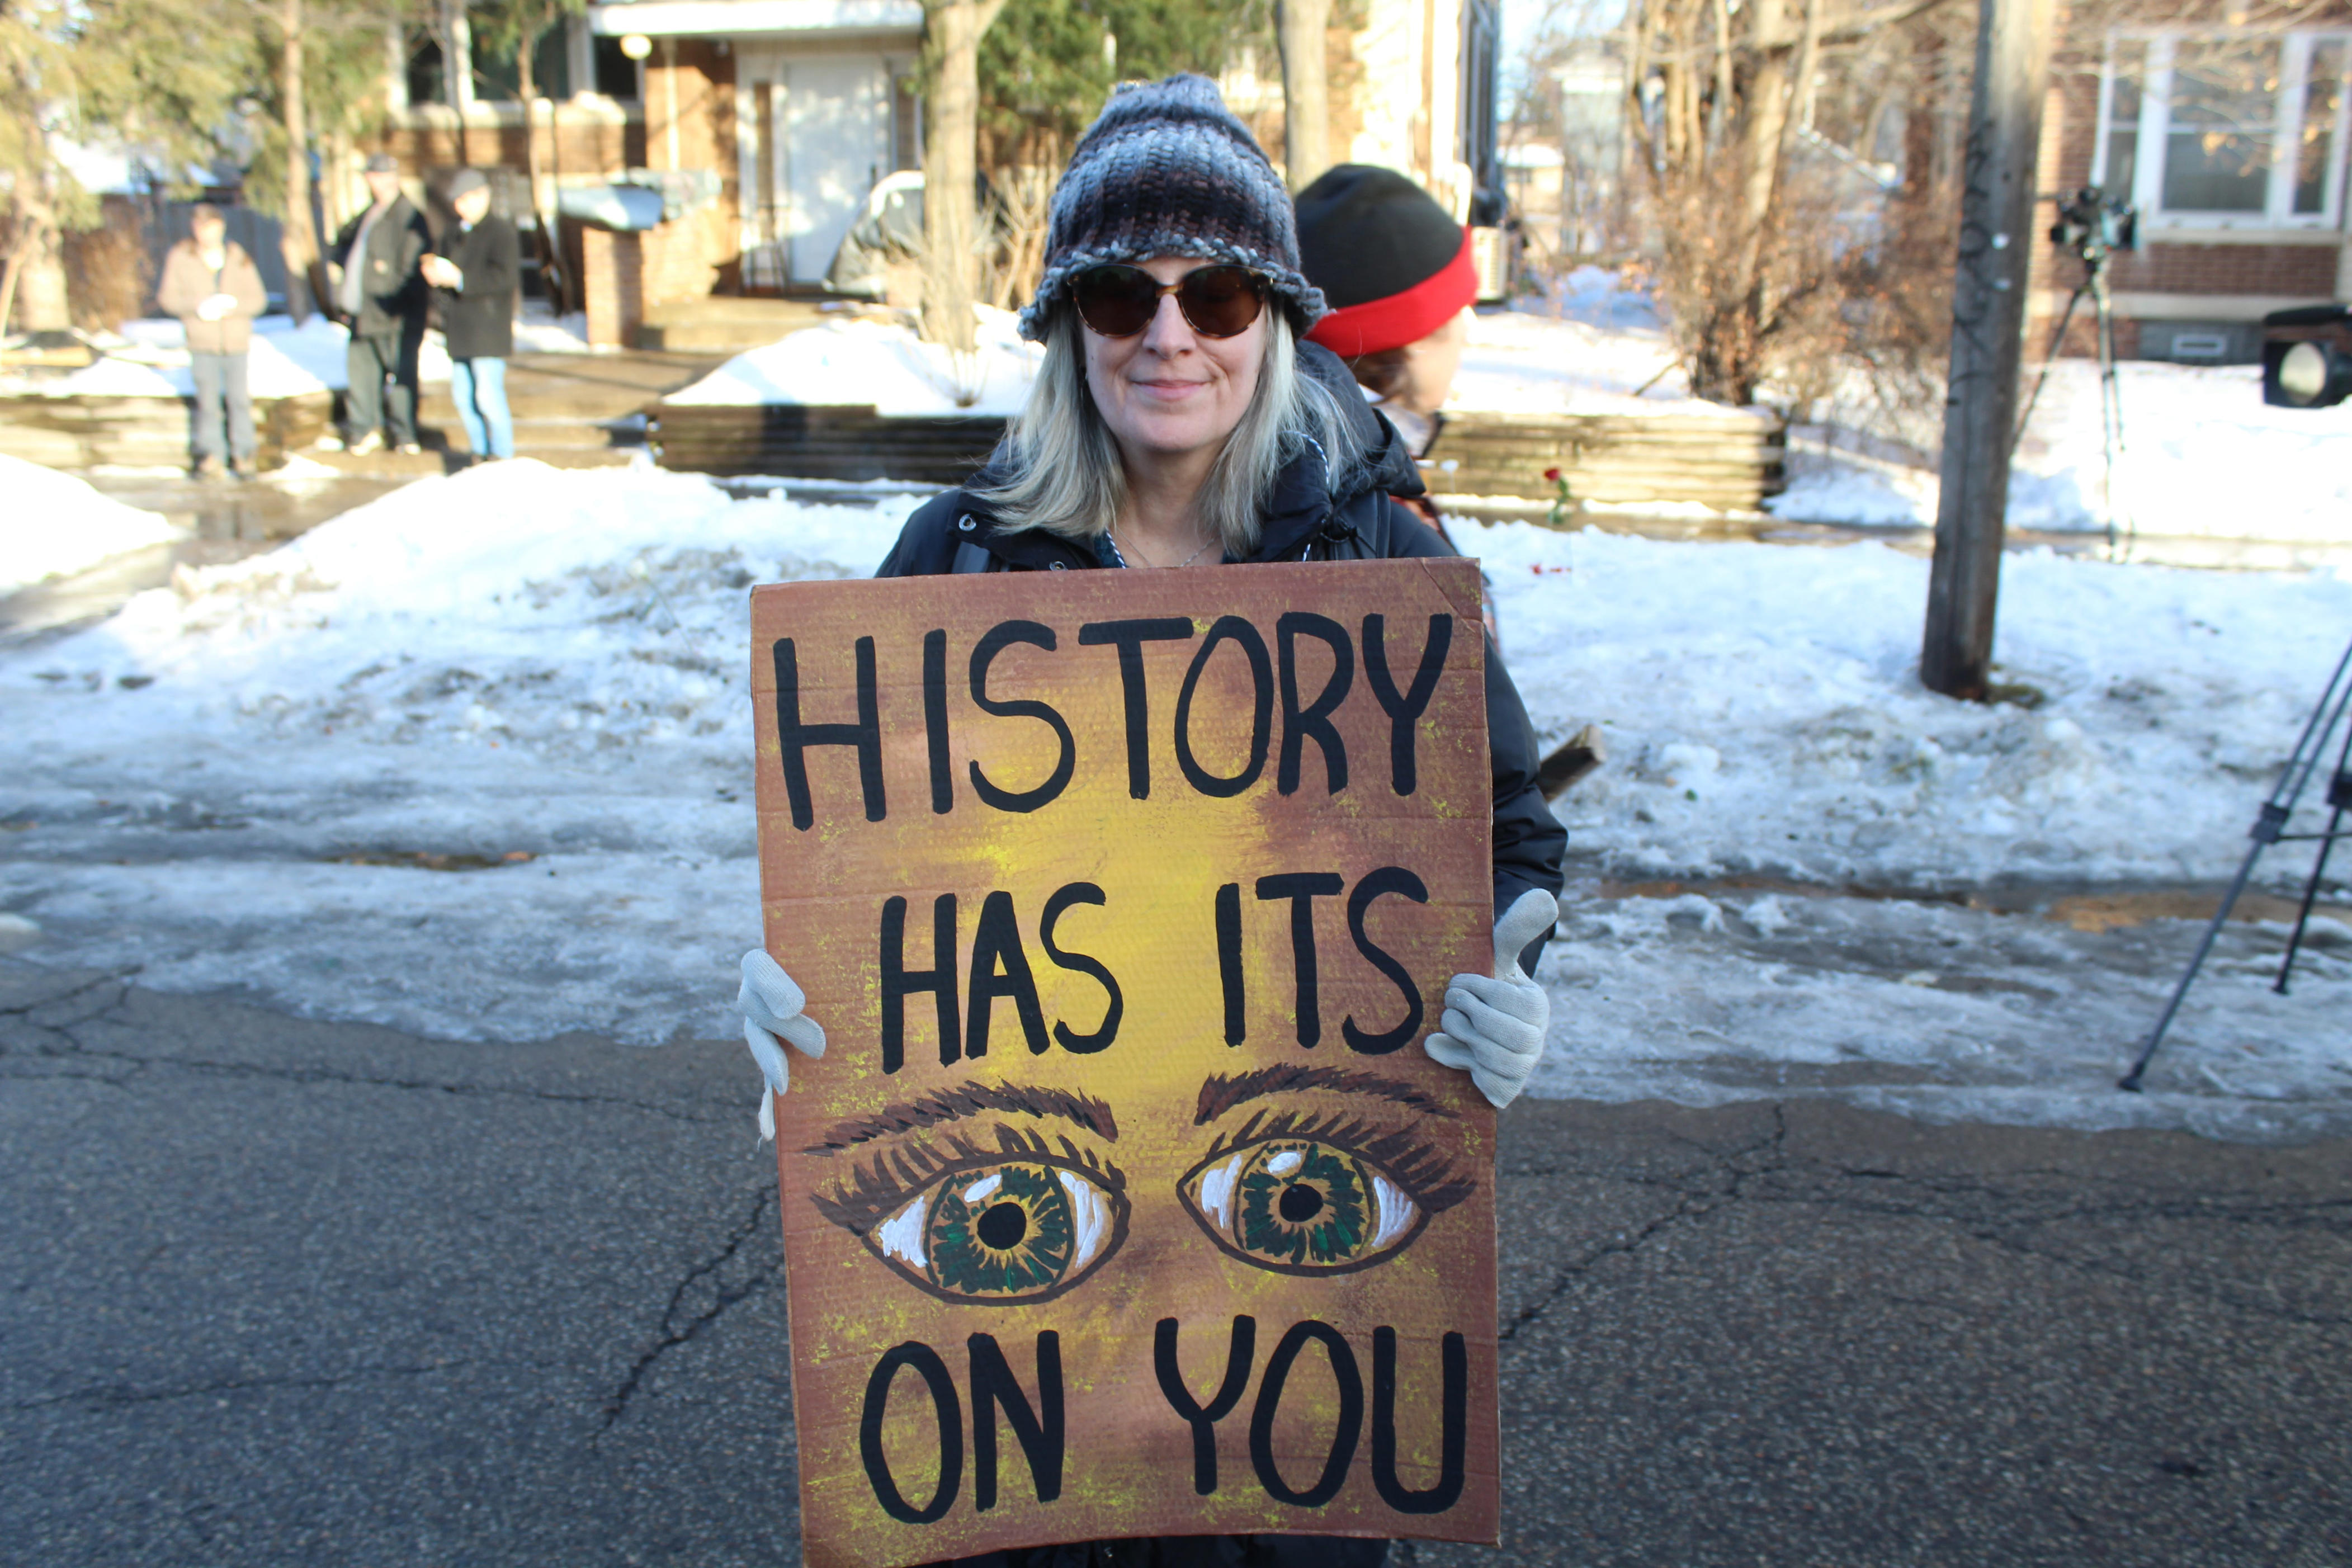 HISTORY
HAS ITS
ON YOU